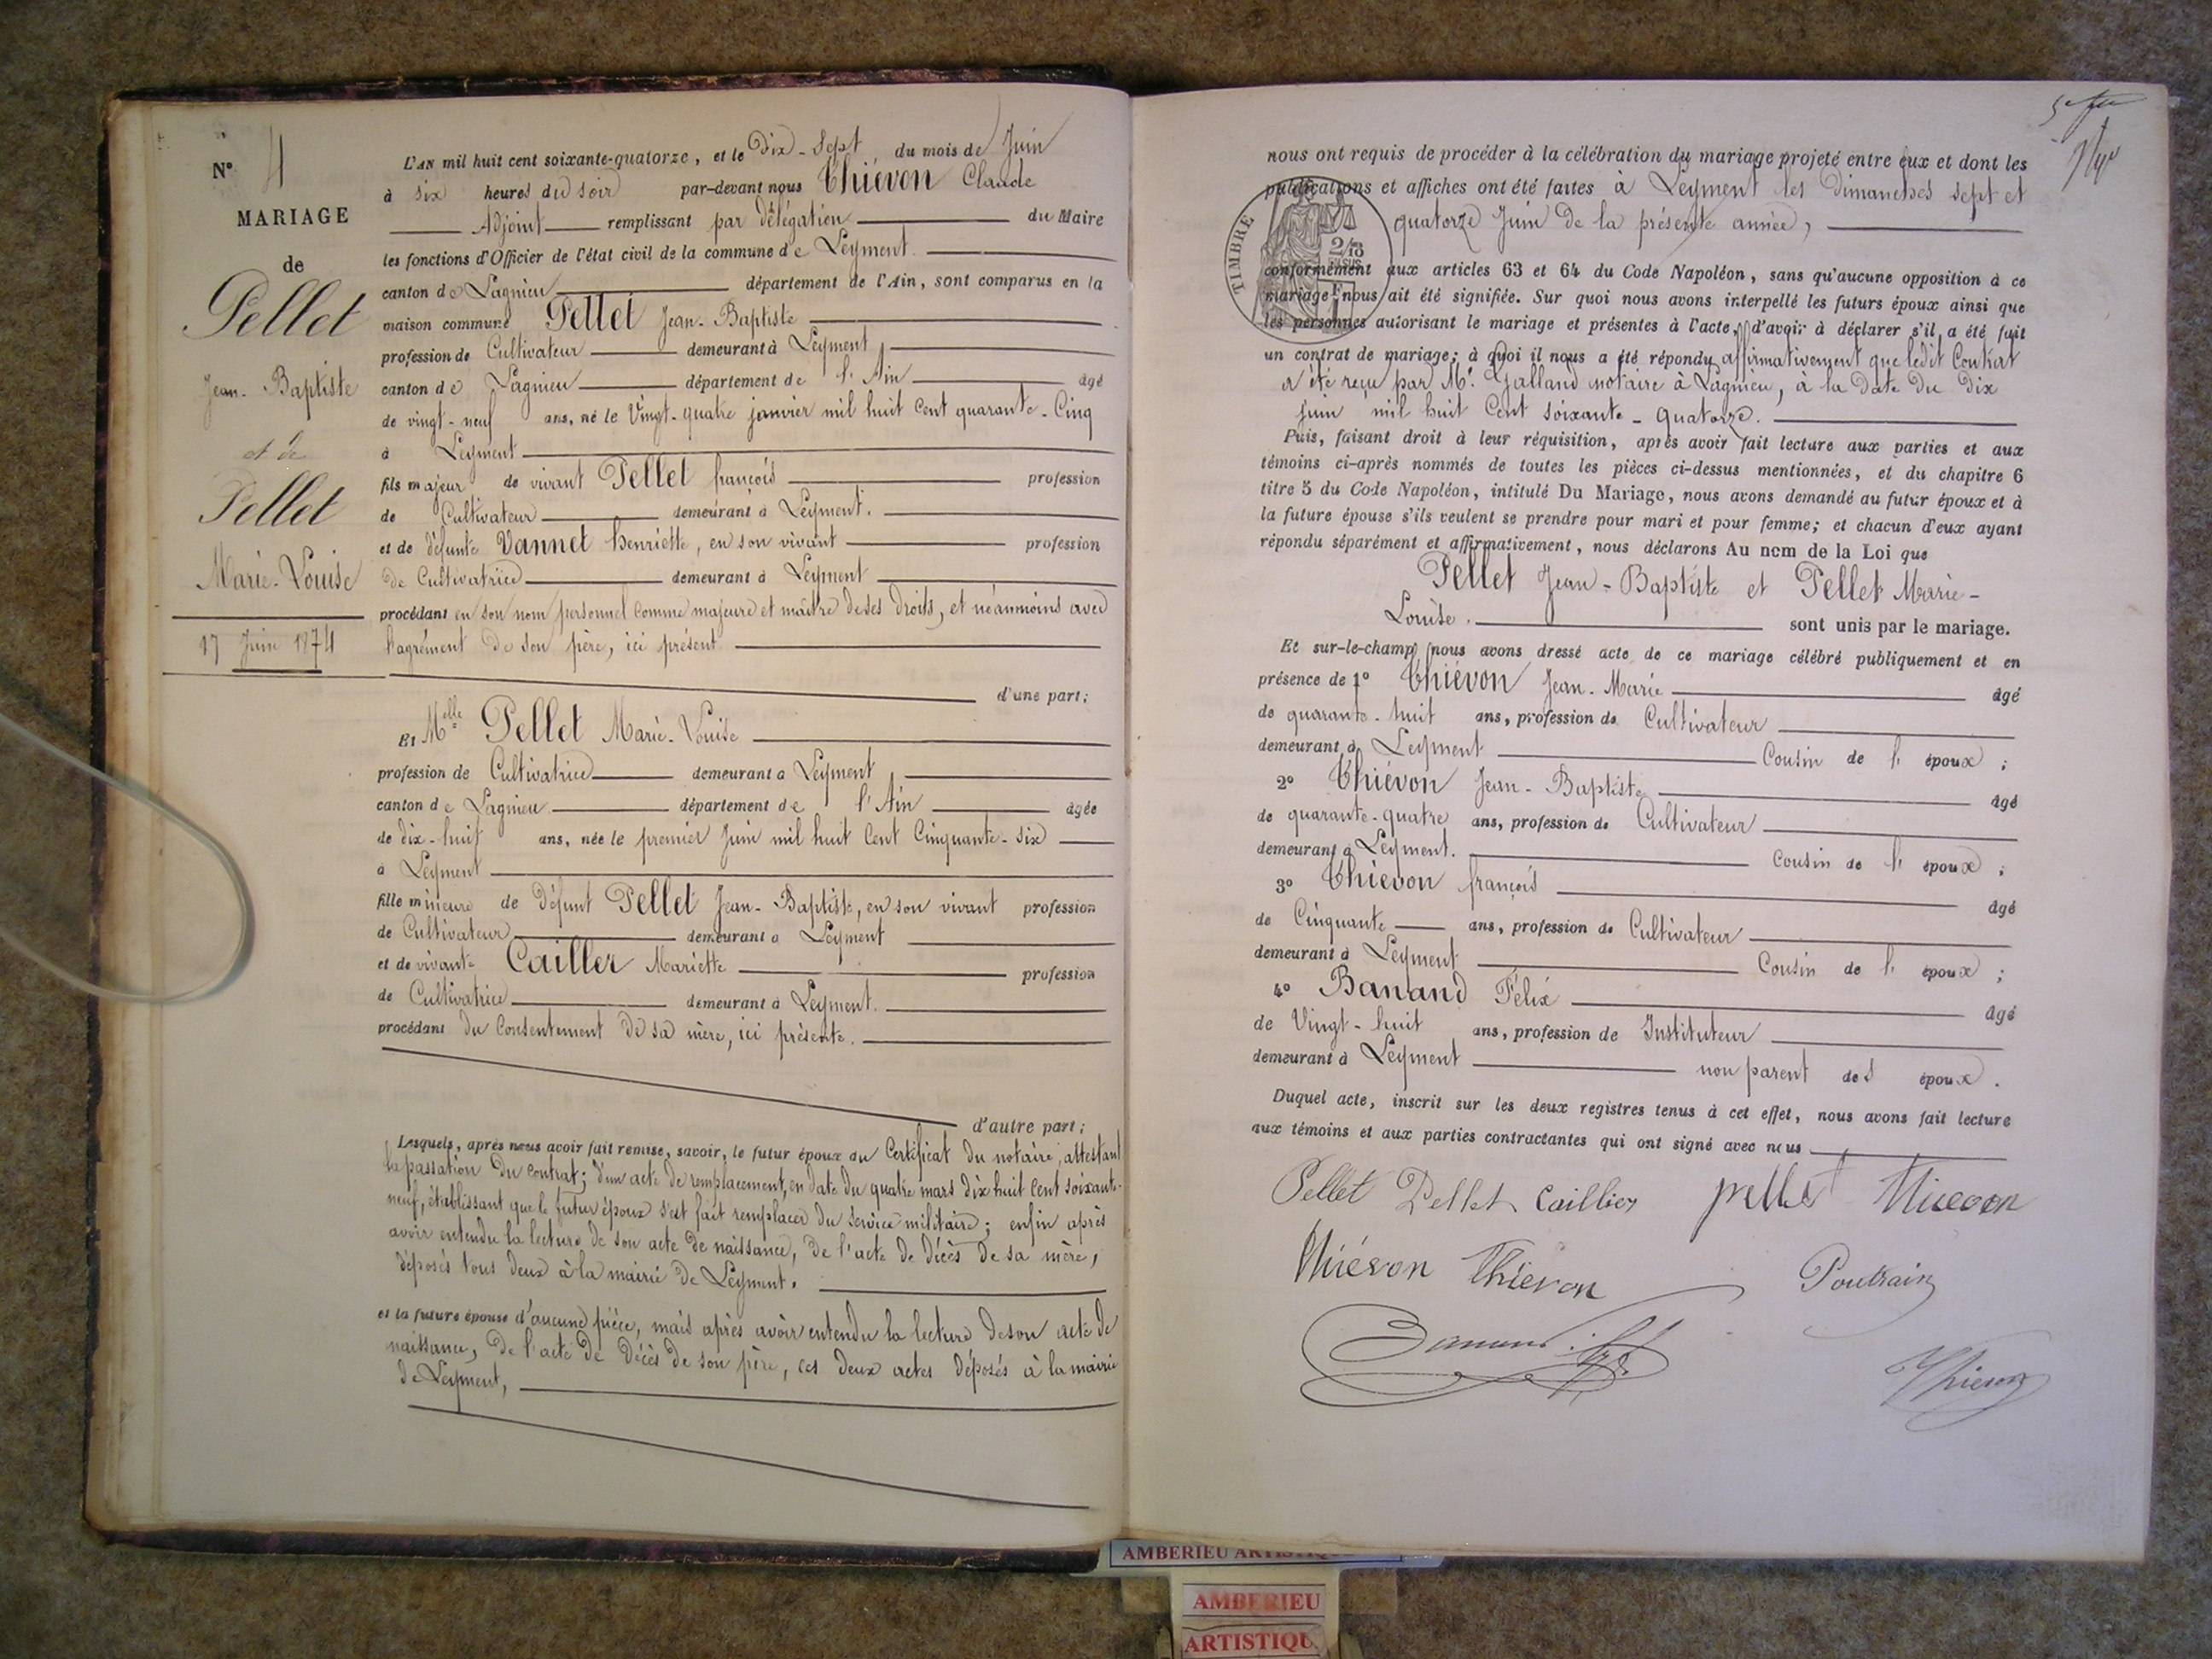 N° 4
MARIAGE
de
Pellet
Jean-Baptiste
et de
Pellet
Marie-Louise
17 Juin 1874
L'AN mil huit cent soixante-quatorze, et le Dix-Sept du mois de Juin
à six heures du soir par-devant nous Thiévon Claude
Adjoint remplissant par délégation du Maire
les fonctions d'Officier de l'état civil de la commune de Leyment
canton de Lagnieu département de l'Ain, sont comparus en la
maison commune Pellet Jean-Baptiste
profession de Cultivateur demeurant à Leyment
canton de Lagnieu département de l'Ain âgé
de vingt-neuf ans, né le Vingt-quatre janvier mil huit Cent quarante-Cinq
à Leyment
fils majeur de vivant Pellet françois profession
de Cultivateur demeurant à Leyment.
et de défunte Vannet henriette, en son vivant profession
de Cultivatrice demeurant à Leyment
procédant en son nom personnel comme majeure et maître de ses droits, et néanmoins avec
l'agrément de son père, ici présent
d'une part;
Et Melle Pellet Marie-Louise
profession de Cultivatrice demeurant à Leyment
canton de Lagnieu département de l'Ain âgée
de dix-huit ans, née le premier Juin mil huit Cent Cinquante-six
à Leyment
fille mineure de défunt Pellet Jean-Baptiste, en son vivant profession
de Cultivateur demeurant à Leyment
et de vivante Cailler Mariette profession
de Cultivatrice demeurant à Leyment.
procédant du Consentement de sa mère, ici présente.
d'autre part;
Lesquels, après nous avoir fait remise, savoir, le futur époux du Certificat du notaire, attestant
la passation du contrat; d'un acte de remplacement, en date du quatre mars dix huit Cent soixante-
neuf, établissant que le futur époux s'est fait remplacer du service militaire; enfin après
avoir entendu la lecture de son acte de naissance, de l'acte de décès de sa mère,
déposés tous deux à la mairie de Leyment.
et la future épouse d'aucune pièce, mais après avoir entendu la lecture de son acte de
naissance, de l'acte de décès de son père, ces deux actes déposés à la mairie
de Leyment,
nous ont requis de procéder à la célébration du mariage projeté entre eux et dont les
publications et affiches ont été faites à Leyment les Dimanches sept et
quatorze Juin de la présente année,
TIMBRE
conformément aux articles 63 et 64 du Code Napoléon, sans qu'aucune opposition à ce
mariage nous ait été signifiée. Sur quoi nous avons interpellé les futurs époux ainsi que
les personnes autorisant le mariage et présentes à l'acte, d'avoir à déclarer s'il a été fait
un contrat de mariage; à quoi il nous a été répondu affirmativement que ledit Contrat
a été reçu par Me. Galland notaire à Lagnieu, à la Date Du dix
Juin mil huit Cent soixante-quatorze.
Puis, faisant droit à leur réquisition, après avoir fait lecture aux parties et aux
témoins ci-après nommés de toutes les pièces ci-dessus mentionnées, et du chapitre 6
titre 5 du Code Napoléon, intitulé Du Mariage, nous avons demandé au futur époux et à
la future épouse s'ils veulent se prendre pour mari et pour femme; et chacun d'eux ayant
répondu séparément et affirmativement, nous déclarons Au nom de la Loi que
Pellet Jean-Baptiste et Pellet Marie-
Louise. sont unis par le mariage.
Et sur-le-champ nous avons dressé acte de ce mariage célébré publiquement et en
présence de 1° Thiévon Jean-Marie âgé
de quarante-huit ans, profession de Cultivateur
demeurant à Leyment Cousin de l' époux;
2° Thiévon Jean-Baptiste âgé
de quarante-quatre ans, profession de Cultivateur
demeurant à Leyment. Cousin de l' époux;
3° Thiévon françois âgé
de Cinquante ans, profession de Cultivateur
demeurant à Leyment Cousin de l' époux;
4° Banand Félix âgé
de Vingt-huit ans, profession de Instituteur
demeurant à Leyment non parent des époux.
Duquel acte, inscrit sur les deux registres tenus à cet effet, nous avons fait lecture
aux témoins et aux parties contractantes qui ont signé avec nous
Pellet Pellet Caillier pellet Thievon
Thiévon Thiévon Poutrain
Banand
Thievon
AMBERIEU ARTISTIQUE
AMBERIEU
ARTISTIQU